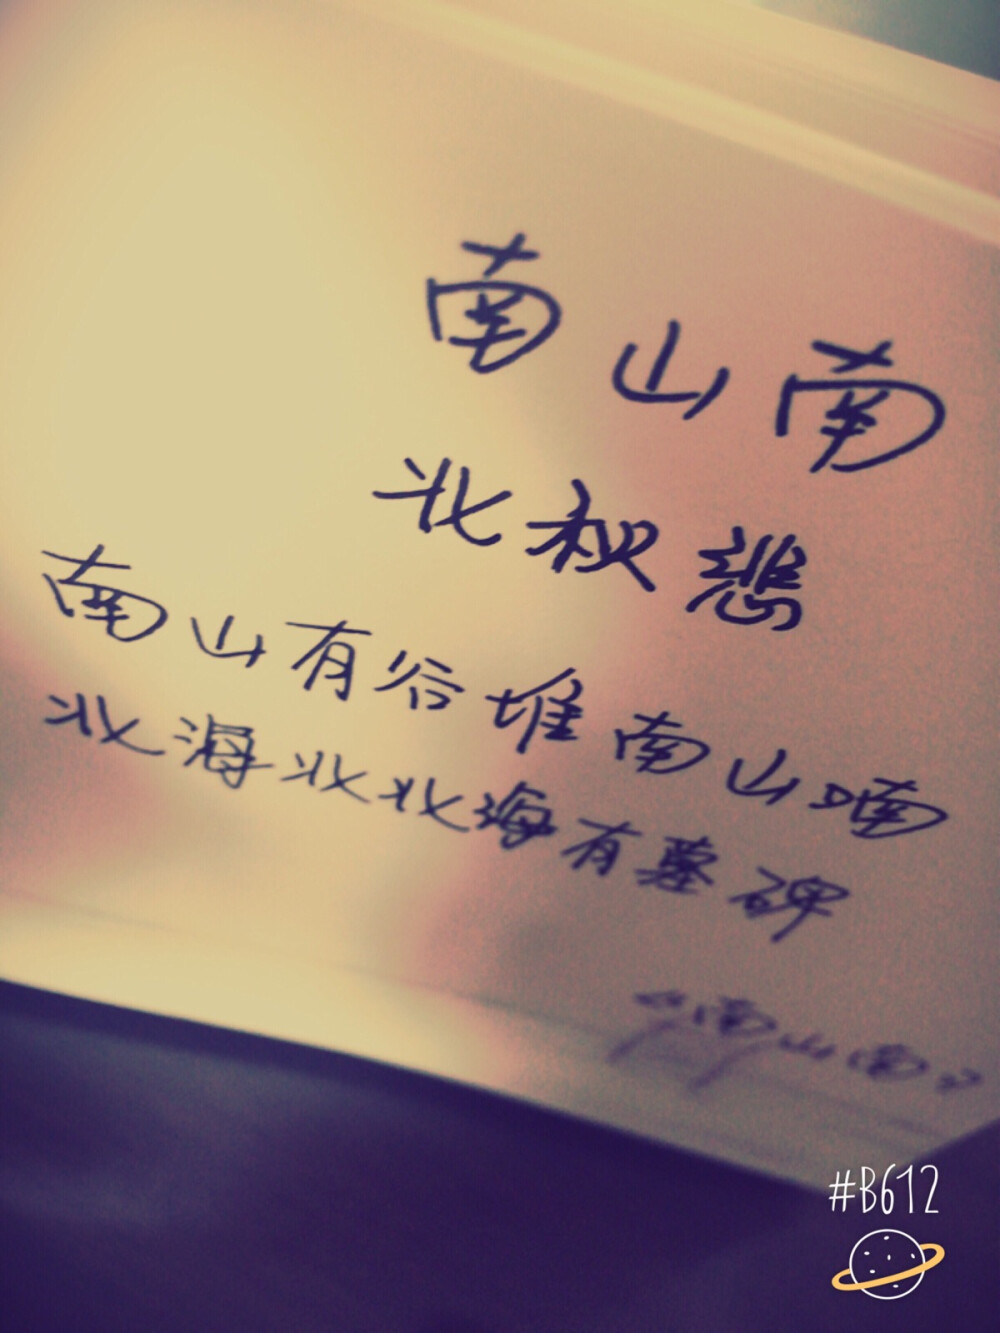 南山南
北秋悲
南山有谷堆南山喃
北海北北海有墓碑
《南山南》
#B612